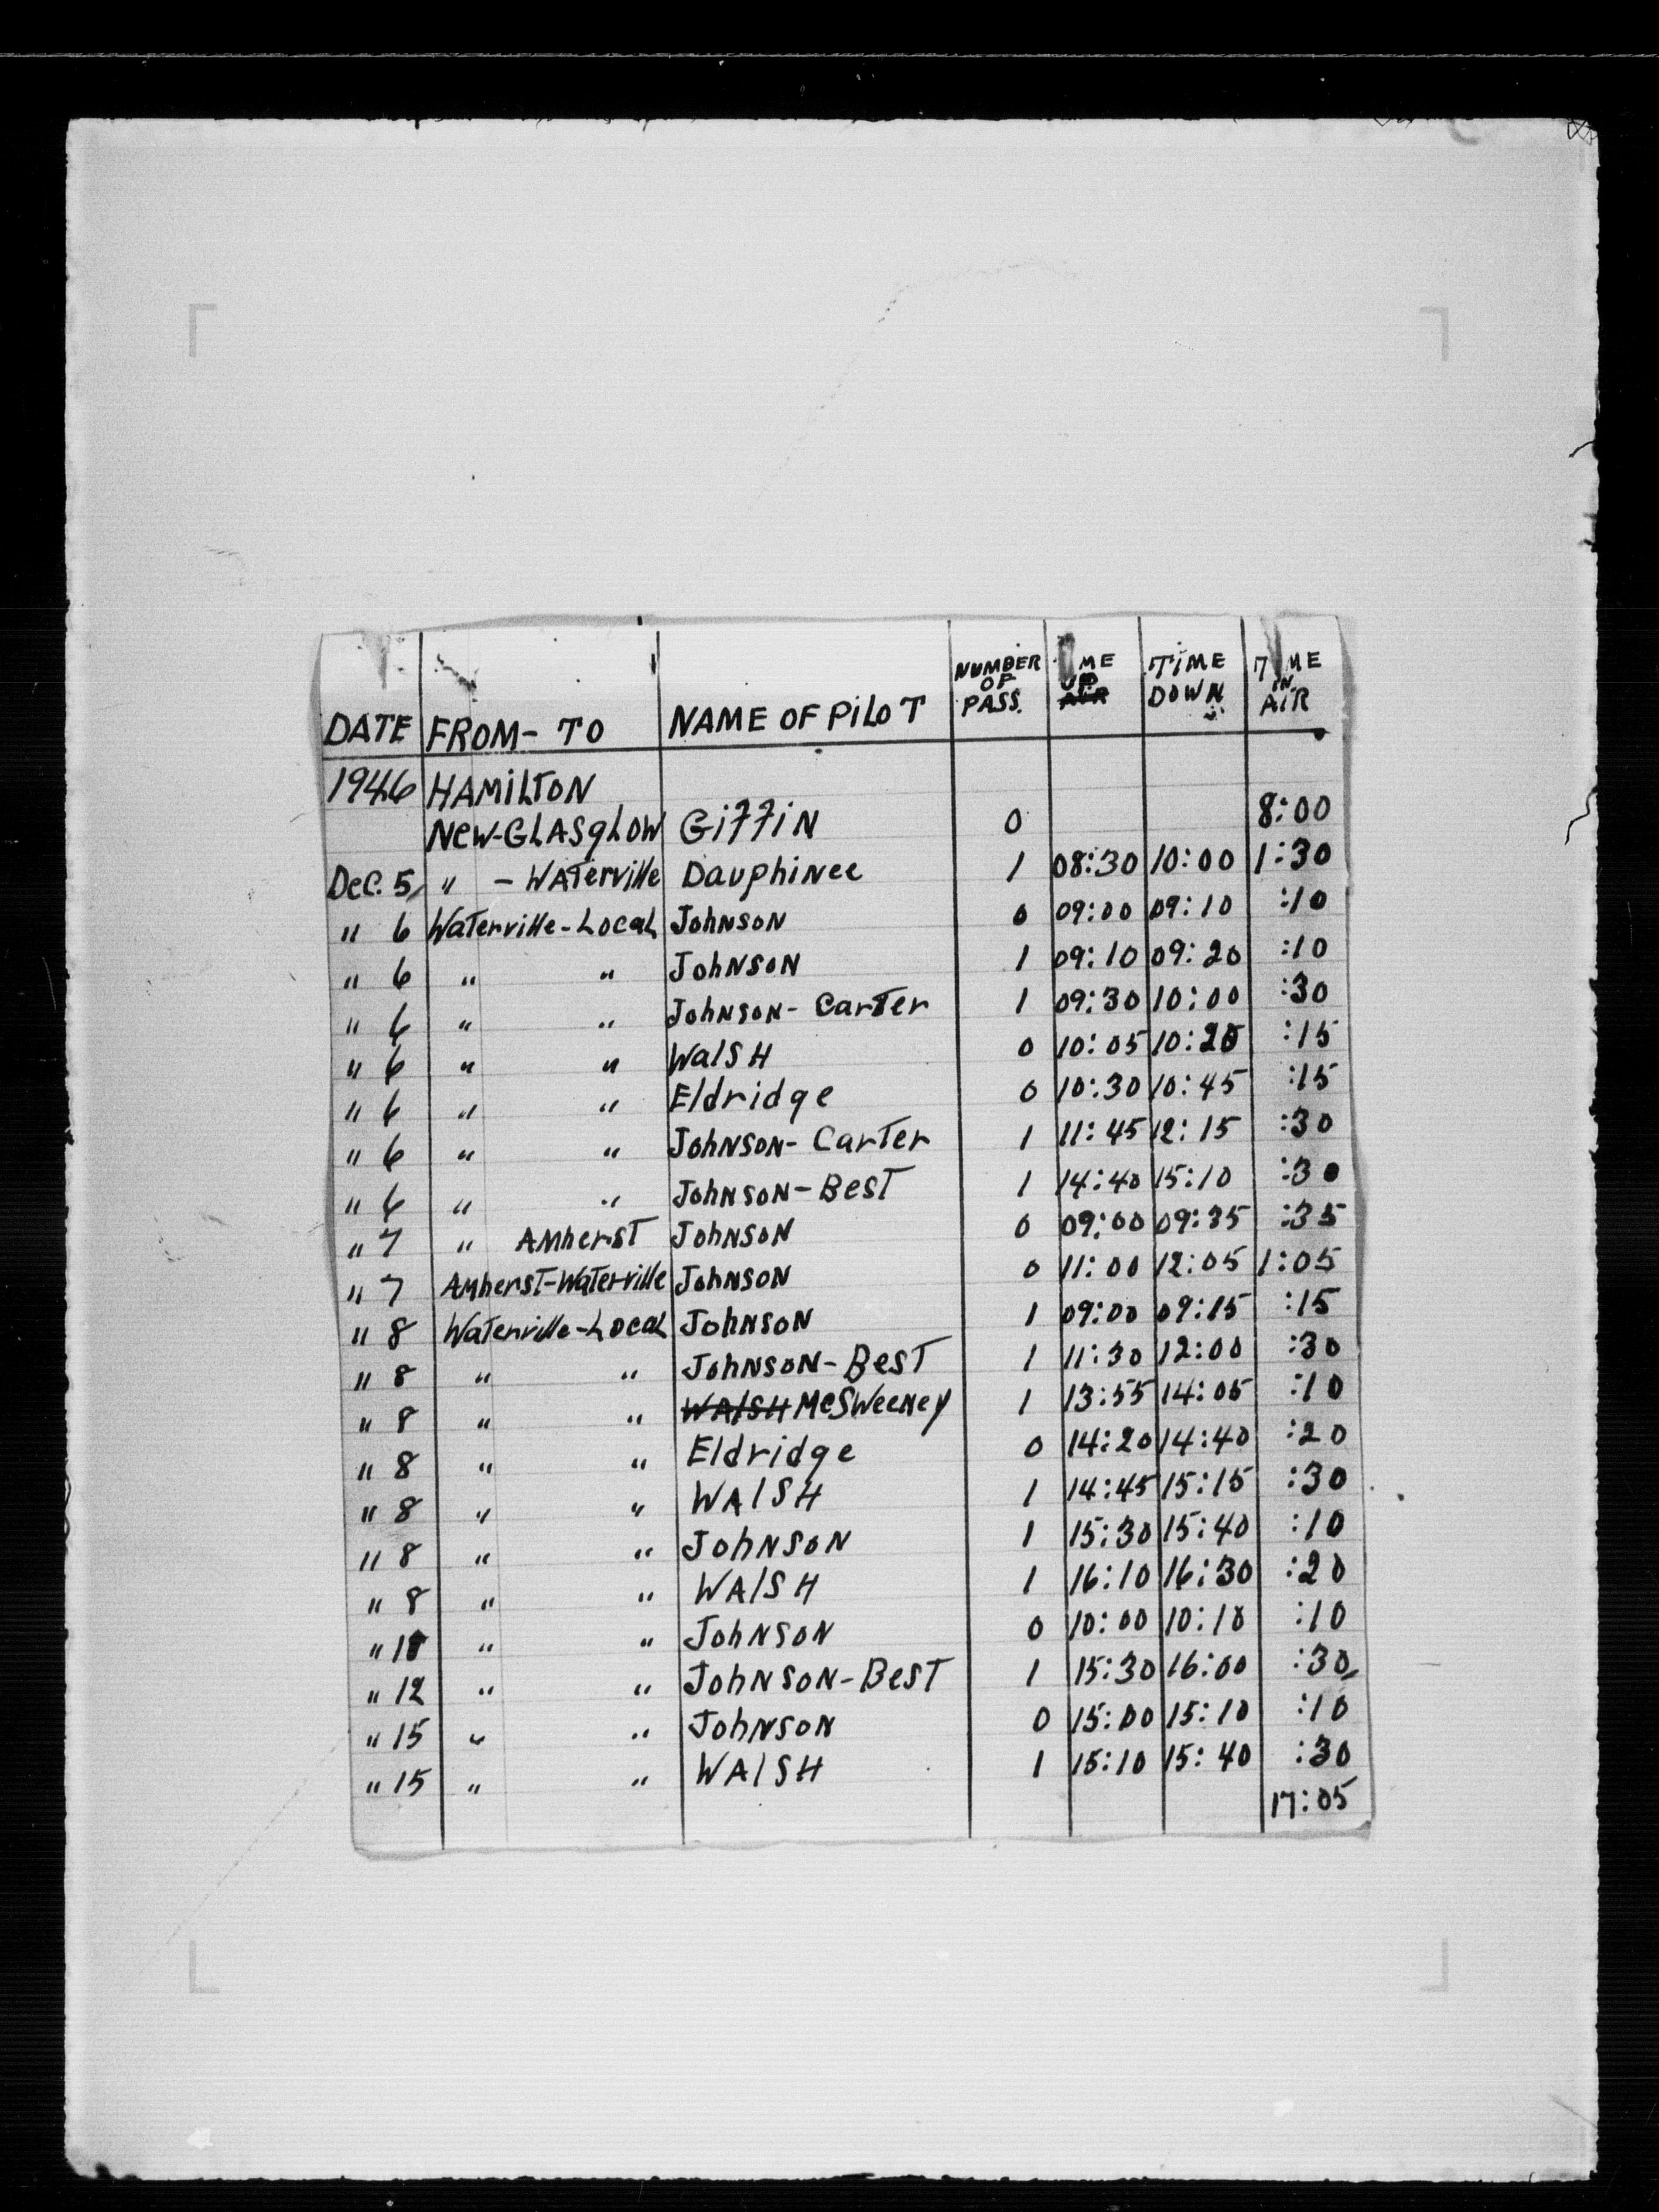 DATE FROM- TO NAME OF PILOT NUMBER OF PASS. TIME UP AIR TIME DOWN TIME IN AIR
1946 HAMILTON
NEW-GLASgLOW Giffin 0 8:00
Dec. 5, " - WATerville Dauphinee 1 08:30 10:00 1:30
" 6 Waterville-Local Johnson 0 09:00 09:10 :10
" 6 " " Johnson 1 09:10 09:20 :10
" 6 " " Johnson- Carter 1 09:30 10:00 :30
" 6 " " WalSH 0 10:05 10:20 :15
" 6 " " Eldridge 0 10:30 10:45 :15
" 6 " " Johnson- Carter 1 11:45 12:15 :30
" 6 " " Johnson-Best 1 14:40 15:10 :30
" 7 " Amherst Johnson 0 09:00 09:35 :35
" 7 Amherst-Waterville Johnson 0 11:00 12:05 1:05
" 8 Waterville-Local Johnson 1 09:00 09:15 :15
" 8 " " Johnson-Best 1 11:30 12:00 :30
" 8 " " WAlSH McSweeney 1 13:55 14:05 :10
" 8 " " Eldridge 0 14:20 14:40 :20
" 8 " " WAlSH 1 14:45 15:15 :30
" 8 " " Johnson 1 15:30 15:40 :10
" 8 " " WAlSH 1 16:10 16:30 :20
" " " Johnson 0 10:00 10:10 :10
" 12 " " Johnson-Best 1 15:30 16:00 :30
" 15 " " Johnson 0 15:00 15:10 :10
" 15 " " WAlSH 1 15:10 15:40 :30
17:05